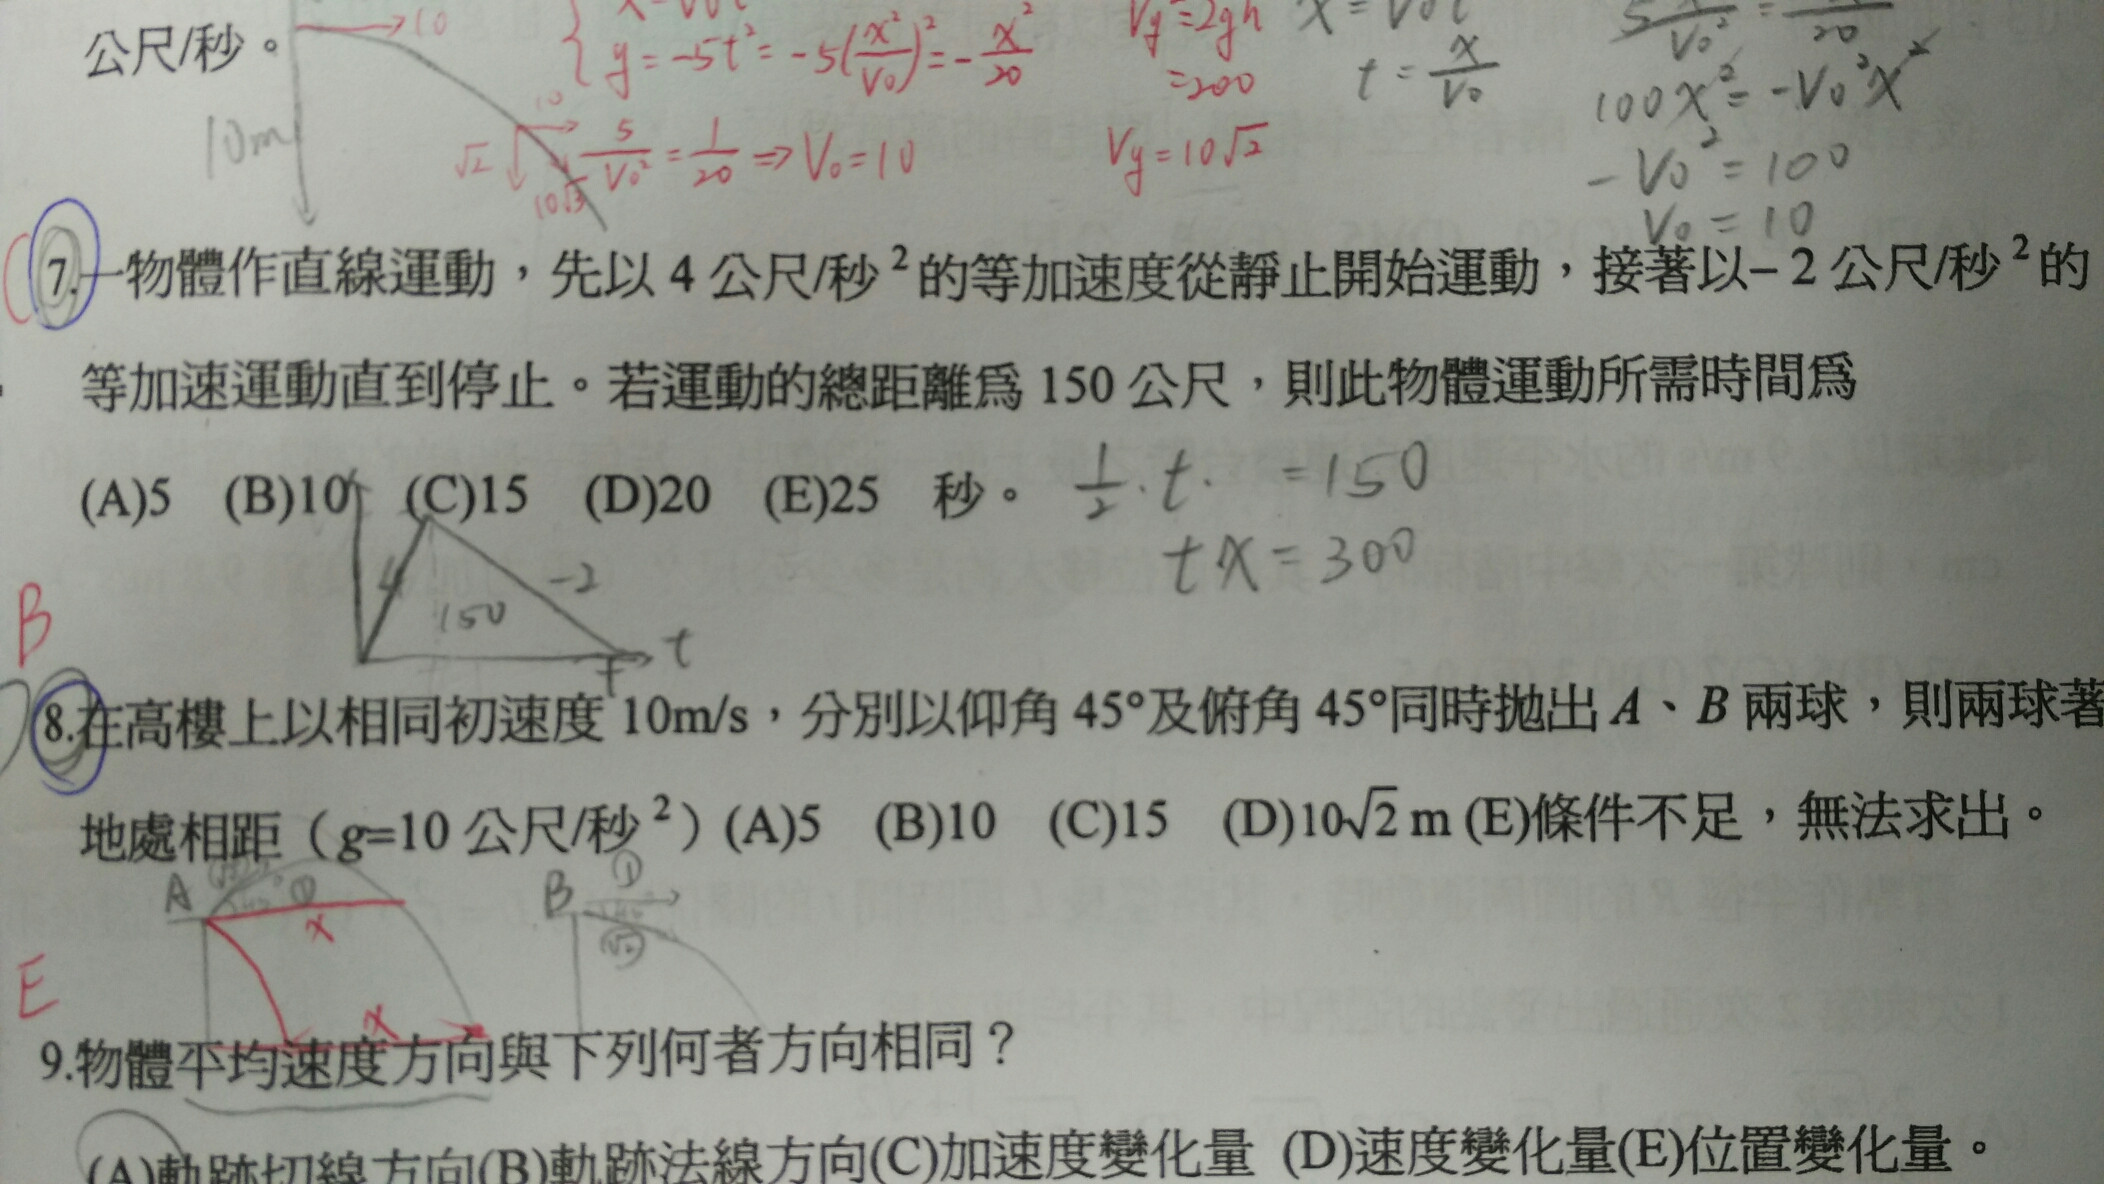 公尺/秒。
10
y = -5t² = -5(x²/V₀)² = -x²/20
Vy² = 2gh
= 200
x = V₀t
t = x/V₀
20
100x² = -V₀²x²
10m
10
√2
10√3
5/V₀² = 1/20 ⇒ V₀ = 10
Vy = 10√2
-V₀² = 100
V₀ = 10
7.一物體作直線運動，先以 4 公尺/秒²的等加速度從靜止開始運動，接著以– 2 公尺/秒²的
等加速運動直到停止。若運動的總距離為 150 公尺，則此物體運動所需時間為
(A)5 (B)10 (C)15 (D)20 (E)25 秒。
1/2 · t · = 150
tx = 300
4
-2
150
t
B
8.在高樓上以相同初速度 10m/s，分別以仰角 45°及俯角 45°同時拋出 A、B 兩球，則兩球著
地處相距（g=10 公尺/秒²）(A)5 (B)10 (C)15 (D)10√2 m (E)條件不足，無法求出。
A
①
x
B
①
x
E
9.物體平均速度方向與下列何者方向相同？
(A)軌跡切線方向(B)軌跡法線方向(C)加速度變化量 (D)速度變化量(E)位置變化量。